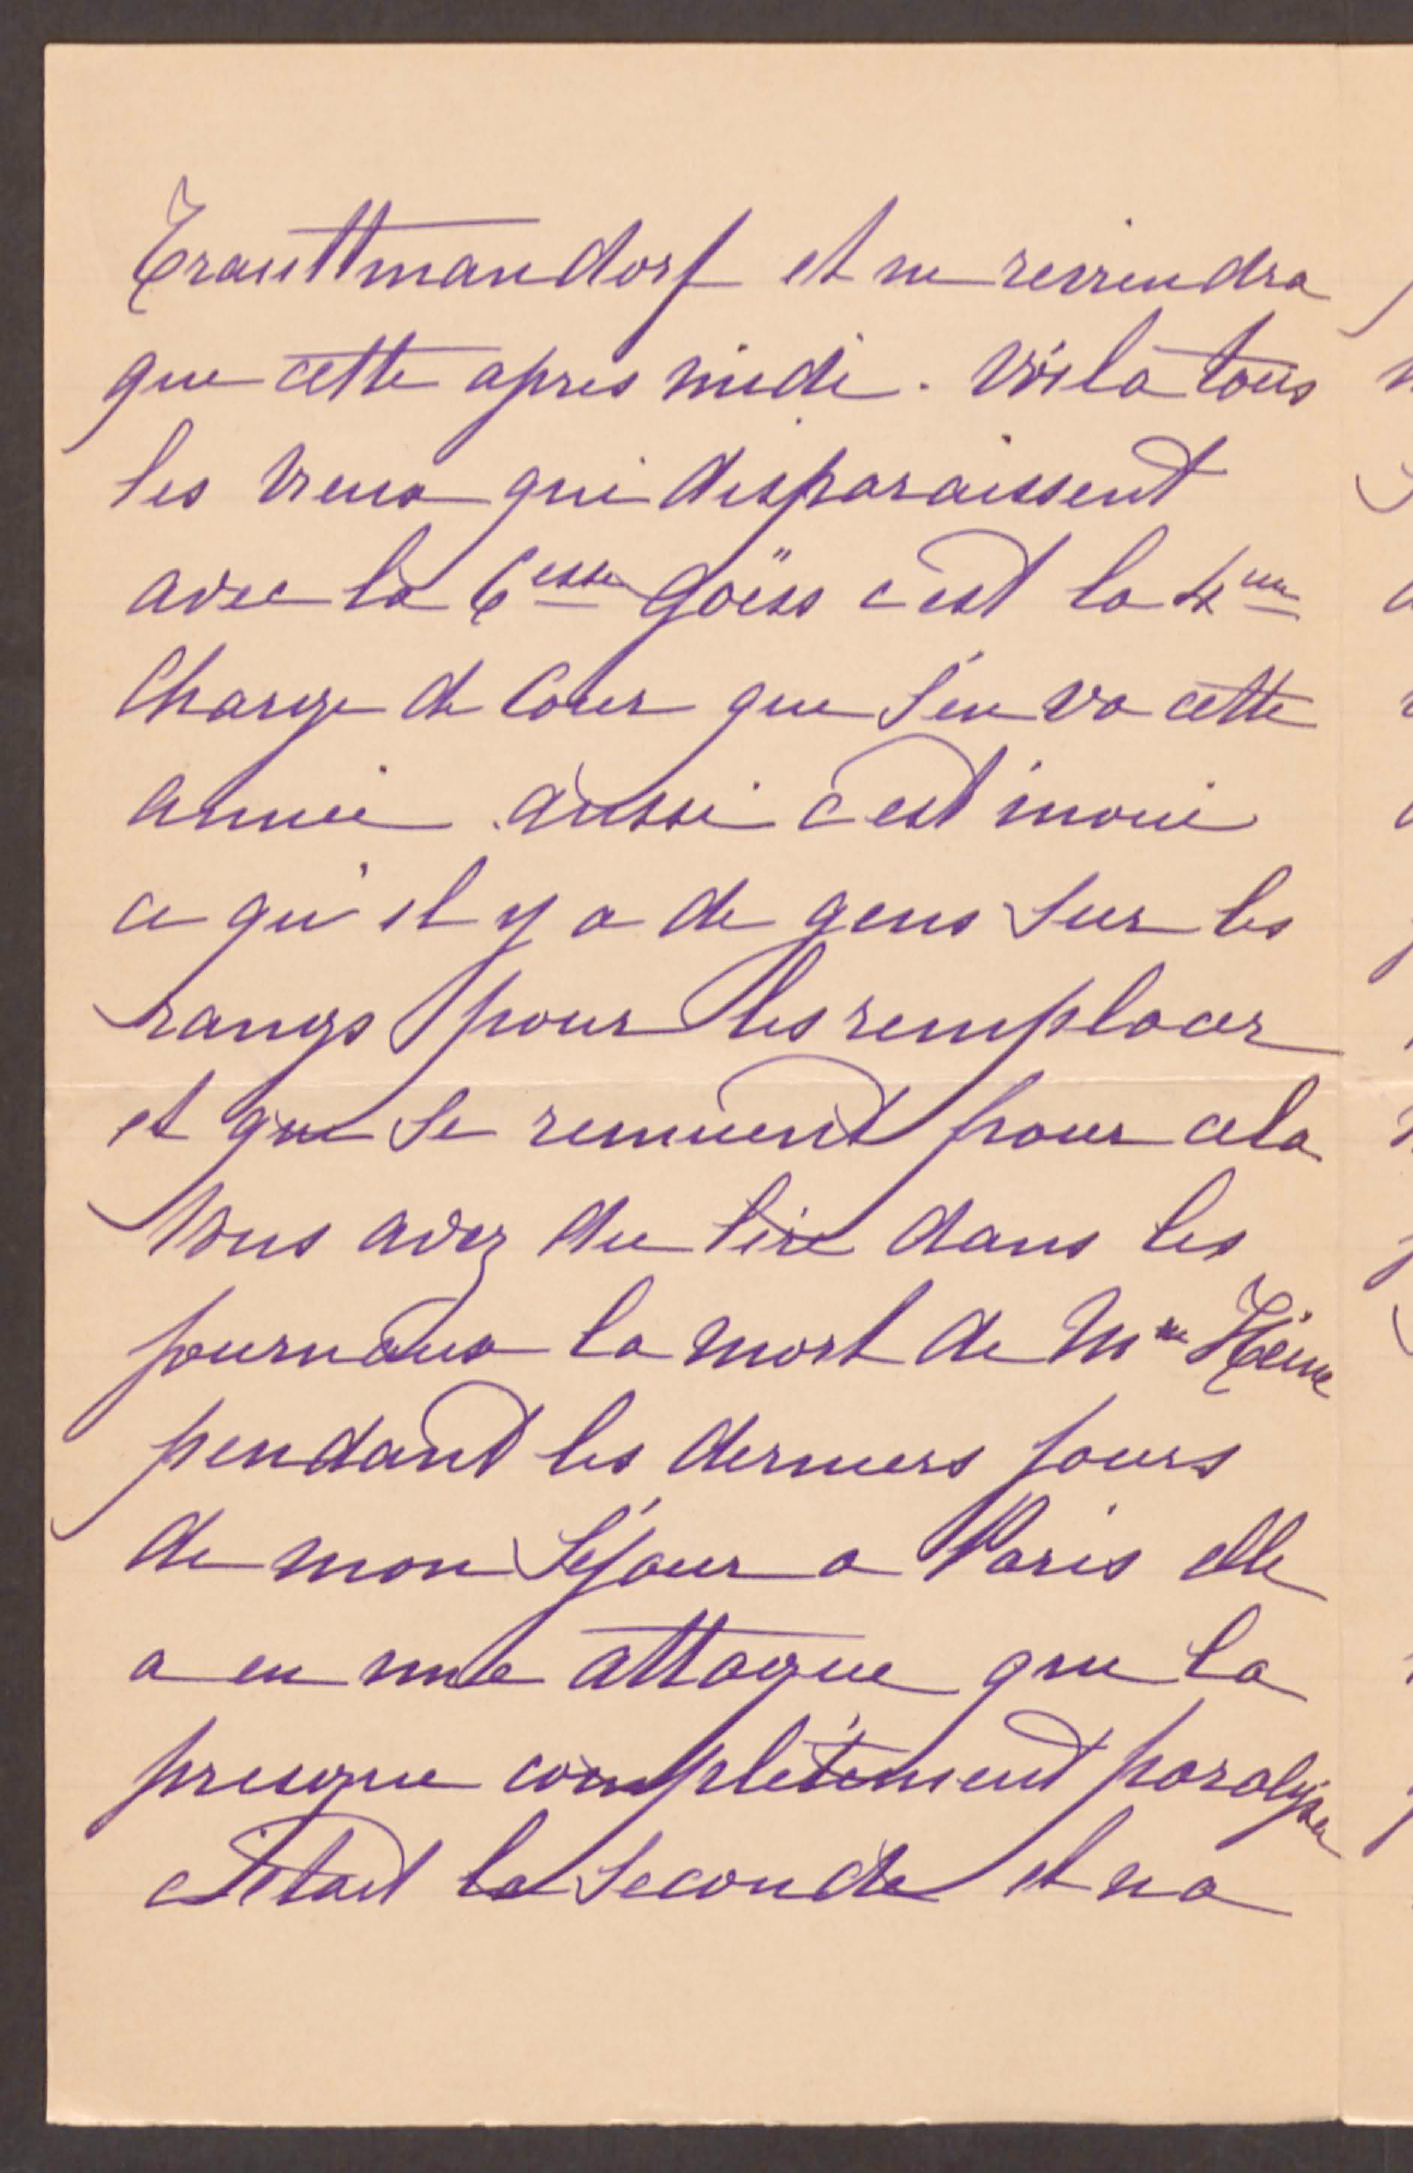 Trauttmandorf et ne reviendra
que cette apres midi. Voila tous
les vieux qui disparaissent
avec la Ctesse Goëss c'est la 4me
Charge de Cour que s'en va cette
année aussi c'est inoui
ce qu'il y a de gens sur les
rangs pour les remplacer
et que se remuent pour cela
Vous avez du lire dans les
journaux la mort de Mme Heine
pendant les derniers jours
de mon Séjour a Paris elle
a eu une attaque que la
presque complètement paralysée
c'était la seconde et na